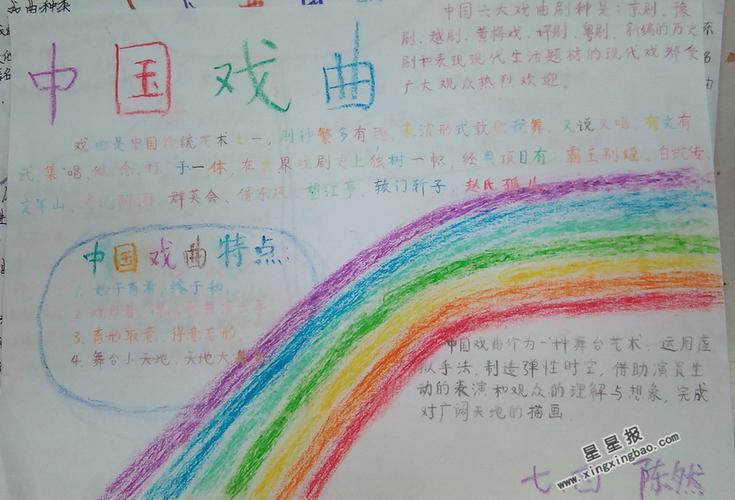 曲种类
中国戏曲
中国六大戏曲剧种是：京剧、豫
剧、越剧、黄梅戏、评剧、粤剧、新编的历史
剧和表现现代生活题材的现代戏都受
广大观众热烈欢迎。
戏曲是中国传统艺术之一，剧种繁多有趣，表演形式载歌载舞，又说又唱，有文有
武，集"唱、做、念、打"于一体，在世界戏剧史上独树一帜，经典项目有：霸王别姬、白蛇传、
定军山、群英会、借东风、望江亭、辕门斩子、赵氏孤儿
中国戏曲特点：
1. 妙于
2. 戏
3. 弃形取意，得意忘形
4. 舞台小天地，天地大舞
中国戏曲作为一种舞台艺术，运用虚
拟手法，制造弹性时空，借助演员生
动的表演和观众的理解与想象，完成
对广阔天地的描画
七四 陈然
星星报
www.xingxingbao.com